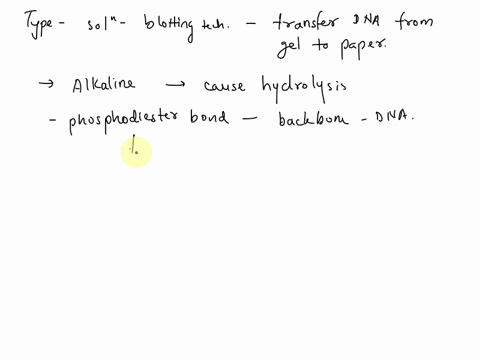 Type - solⁿ - blotting tech. - transfer DNA from
gel to paper.
→ Alkaline → cause hydrolysis
- phosphodiester bond - backbone - DNA.